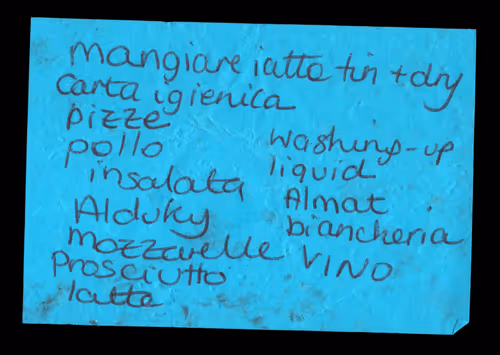 mangiare iatto tin + dry
Carta igienica
pizze
pollo
insalata
Alduky
mozzarelle
Prosciutto
latte
washing-up
liquid
Almat
biancheria
VINO